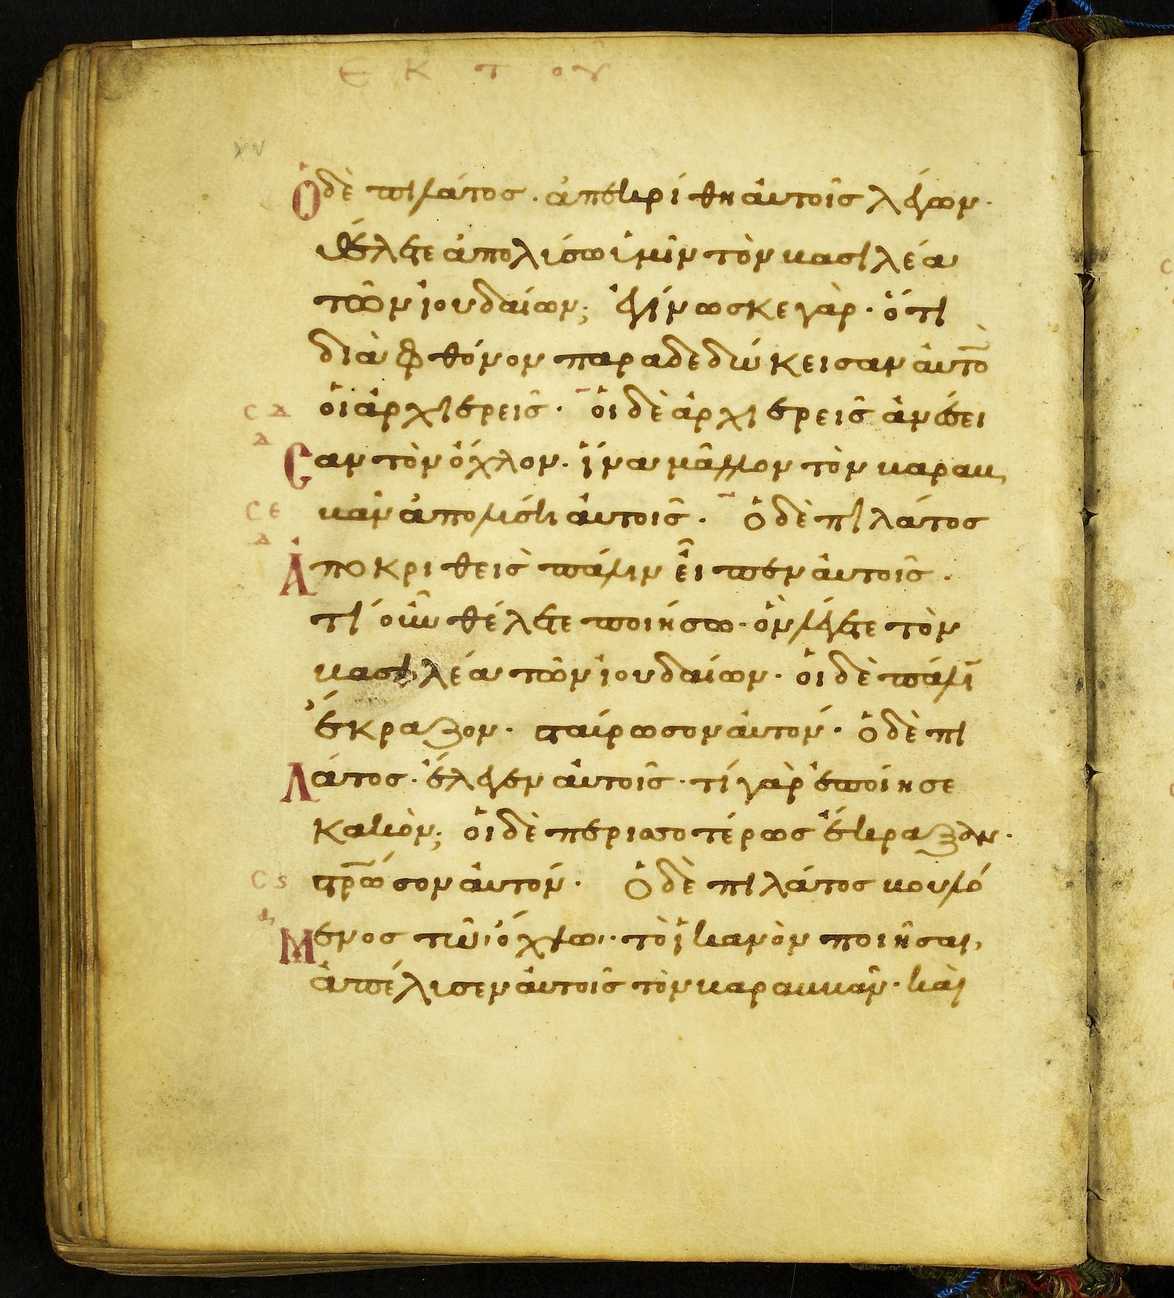 ΕΚΤΟΥ
XV
Ὁ δὲ πιλάτος · ἀπεκρίθη αὐτοῖς λέγων ·
θέλετε ἀπολύσω ὑμῖν τὸν βασιλέα
τῶν ἰουδαίων; ἐγίνωσκε γὰρ · ὅτι
διὰ φθόνον παραδεδώκεισαν αὐτὸ
σδ οἱ ἀρχιερεῖς · οἱ δὲ ἀρχιερεῖς ἀνέσει
δ Σαν τὸν ὄχλον · ἵνα μᾶλλον τὸν βαραβ
σε βᾶν ἀπολύσει αὐτοῖς · ὁ δὲ πιλάτος
δ Ἀποκριθεὶς πάλιν εἶπεν αὐτοῖς ·
τί οὖν θέλετε ποιήσω · ὃν λέγετε τὸν
βασιλέα τῶν ἰουδαίων · οἱ δὲ πάλι
ἔκραζον · σταύρωσον αὐτόν · ὁ δὲ πι
Λάτος · ἔλεγεν αὐτοῖς · τί γὰρ ἐποίησε
κακὸν; οἱ δὲ περισσοτέρως ἔκραζον ·
σς στρωσον αὐτόν · Ὁ δὲ πιλάτος βουλό
Μενος τῶ ὄχλω · τὸ ἱκανὸν ποιῆσαι,
ἀπέλυσεν αὐτοῖς τὸν βαραββᾶν · καὶ